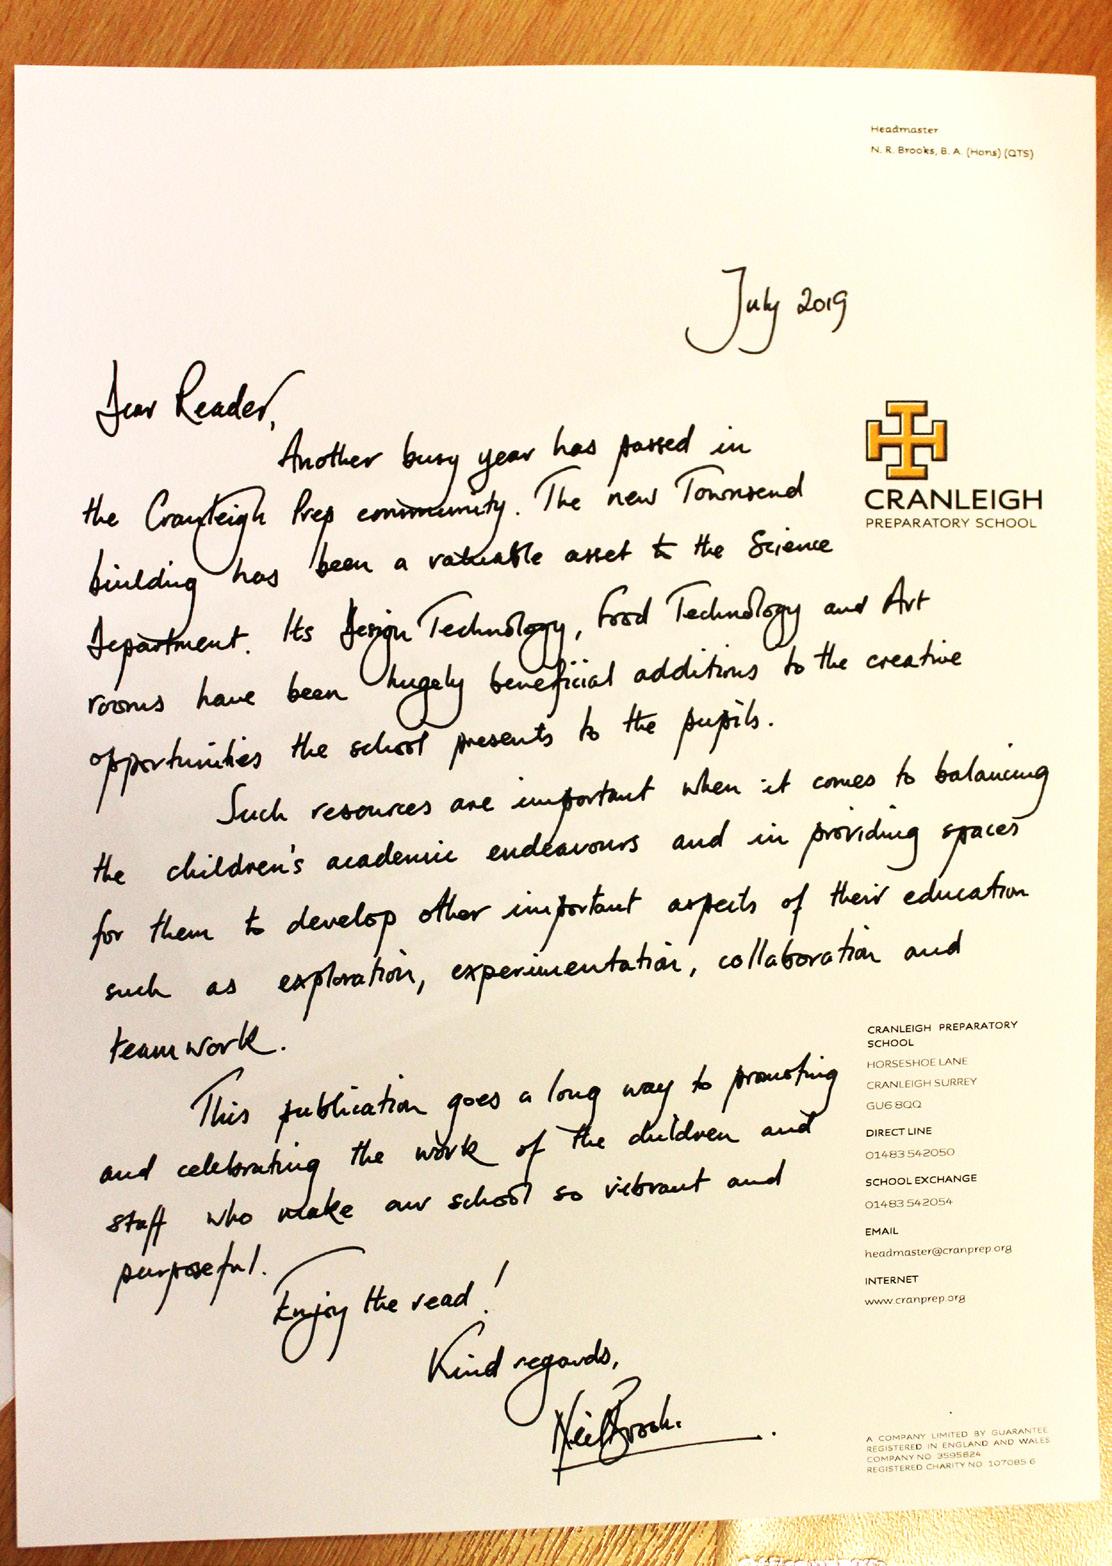 Headmaster
N. R. Brooks, B. A. (Hons) (QTS)
July 2019
Dear Reader,
Another busy year has passed in
the Cranleigh Prep community. The new Townsend
building has been a valuable asset to the Science
Department. Its Design Technology, Food Technology and Art
rooms have been hugely beneficial additions to the creative
opportunities the school presents to the pupils.
Such resources are important when it comes to balancing
the children's academic endeavours and in providing spaces
for them to develop other important aspects of their education
such as exploration, experimentation, collaboration and
teamwork.
This publication goes a long way to promoting
and celebrating the work of the children and
staff who make our school so vibrant and
purposeful.
Enjoy the read!
Kind regards,
Neil Brooks.
CRANLEIGH
PREPARATORY SCHOOL
CRANLEIGH PREPARATORY
SCHOOL
HORSESHOE LANE
CRANLEIGH SURREY
GU6 8QQ
DIRECT LINE
01483 542050
SCHOOL EXCHANGE
01483 542054
EMAIL
headmaster@cranprep.org
INTERNET
www.cranprep.org
A COMPANY LIMITED BY GUARANTEE
REGISTERED IN ENGLAND AND WALES
COMPANY NO 3595824
REGISTERED CHARITY NO 107085 6